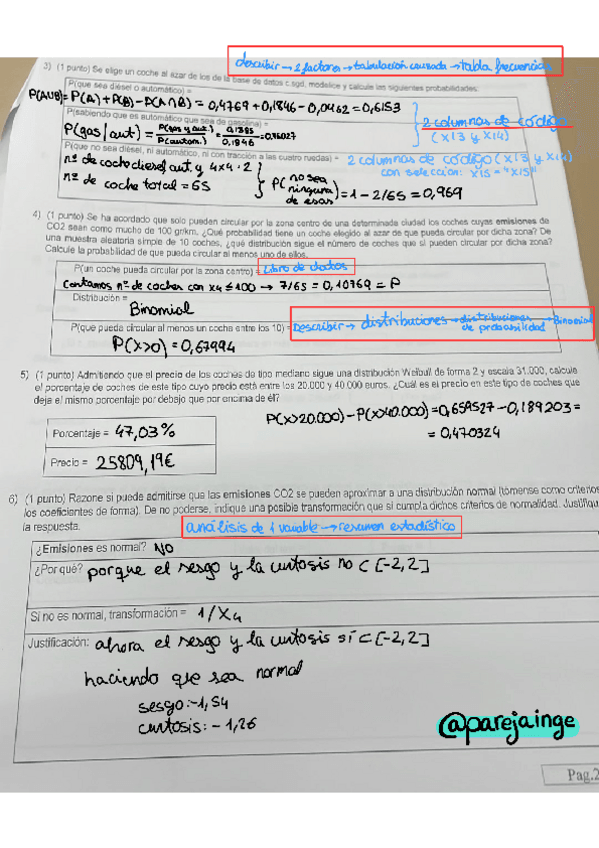 describir → 2 factores → tabulación cruzada → tabla frecuencias
3) (1 punto) Se elige un coche al azar de los de la base de datos c.sgd, modelice y calcule las siguientes probabilidades:
P(que sea diésel o automático) =
P(A∪B)= P(A)+P(B)-P(A∩B) = 0,4769 + 0,1846 - 0,0462 = 0,6153
P(sabiendo que es automático que sea de gasolina) =
P(gas/aut) = P(gas y aut.)/P(autom.) = 0,1385/0,1846 =
2 columnas de código
(X13 y X14)
P(que no sea diésel, ni automático, ni con tracción a las cuatro ruedas) =
2 columnas de código (X13 y X14)
con selección: X15 = "X15"
nº de coche diesel, aut. y 4x4 · 2
nº de coche total = 65
P(no sea ninguna de esas) = 1 - 2/65 = 0,969
4) (1 punto) Se ha acordado que solo pueden circular por la zona centro de una determinada ciudad los coches cuyas emisiones de
CO2 sean como mucho de 100 gr/km. ¿Qué probabilidad tiene un coche elegido al azar de que pueda circular por dicha zona? De
una muestra aleatoria simple de 10 coches, ¿qué distribución sigue el número de coches que sí pueden circular por dicha zona?
Calcule la probabilidad de que pueda circular al menos uno de ellos.
P(un coche pueda circular por la zona centro) = Libro de datos
Contamos nº de coches con X4 ≤ 100 → 7/65 = 0,10769 = P
Distribución =
Binomial
P(que pueda circular al menos un coche entre los 10) = Describir → distribuciones → distribuciones de probabilidad → Binomial
P(X>0) = 0,67994
5) (1 punto) Admitiendo que el precio de los coches de tipo mediano sigue una distribución Weibull de forma 2 y escala 31.000, calcule
el porcentaje de coches de este tipo cuyo precio está entre los 20.000 y 40.000 euros. ¿Cuál es el precio en este tipo de coches que
deja el mismo porcentaje por debajo que por encima de él?
Porcentaje = 47,03%
P(X>20.000) - P(X>40.000) = 0,659527 - 0,189203 =
= 0,470324
Precio = 25809,19€
6) (1 punto) Razone si puede admitirse que las emisiones CO2 se pueden aproximar a una distribución normal (tómense como criterios
los coeficientes de forma). De no poderse, indique una posible transformación que sí cumpla dichos criterios de normalidad. Justifique
la respuesta.
análisis de 1 variable → resumen estadístico
¿Emisiones es normal? NO
¿Por qué? porque el sesgo y la curtosis no ⊂ [-2,2]
Si no es normal, transformación = 1/X4
Justificación: ahora el sesgo y la curtosis sí ⊂ [-2,2]
haciendo que sea normal
sesgo: -1,54
curtosis: - 1,26
@parejainge
Pag.2